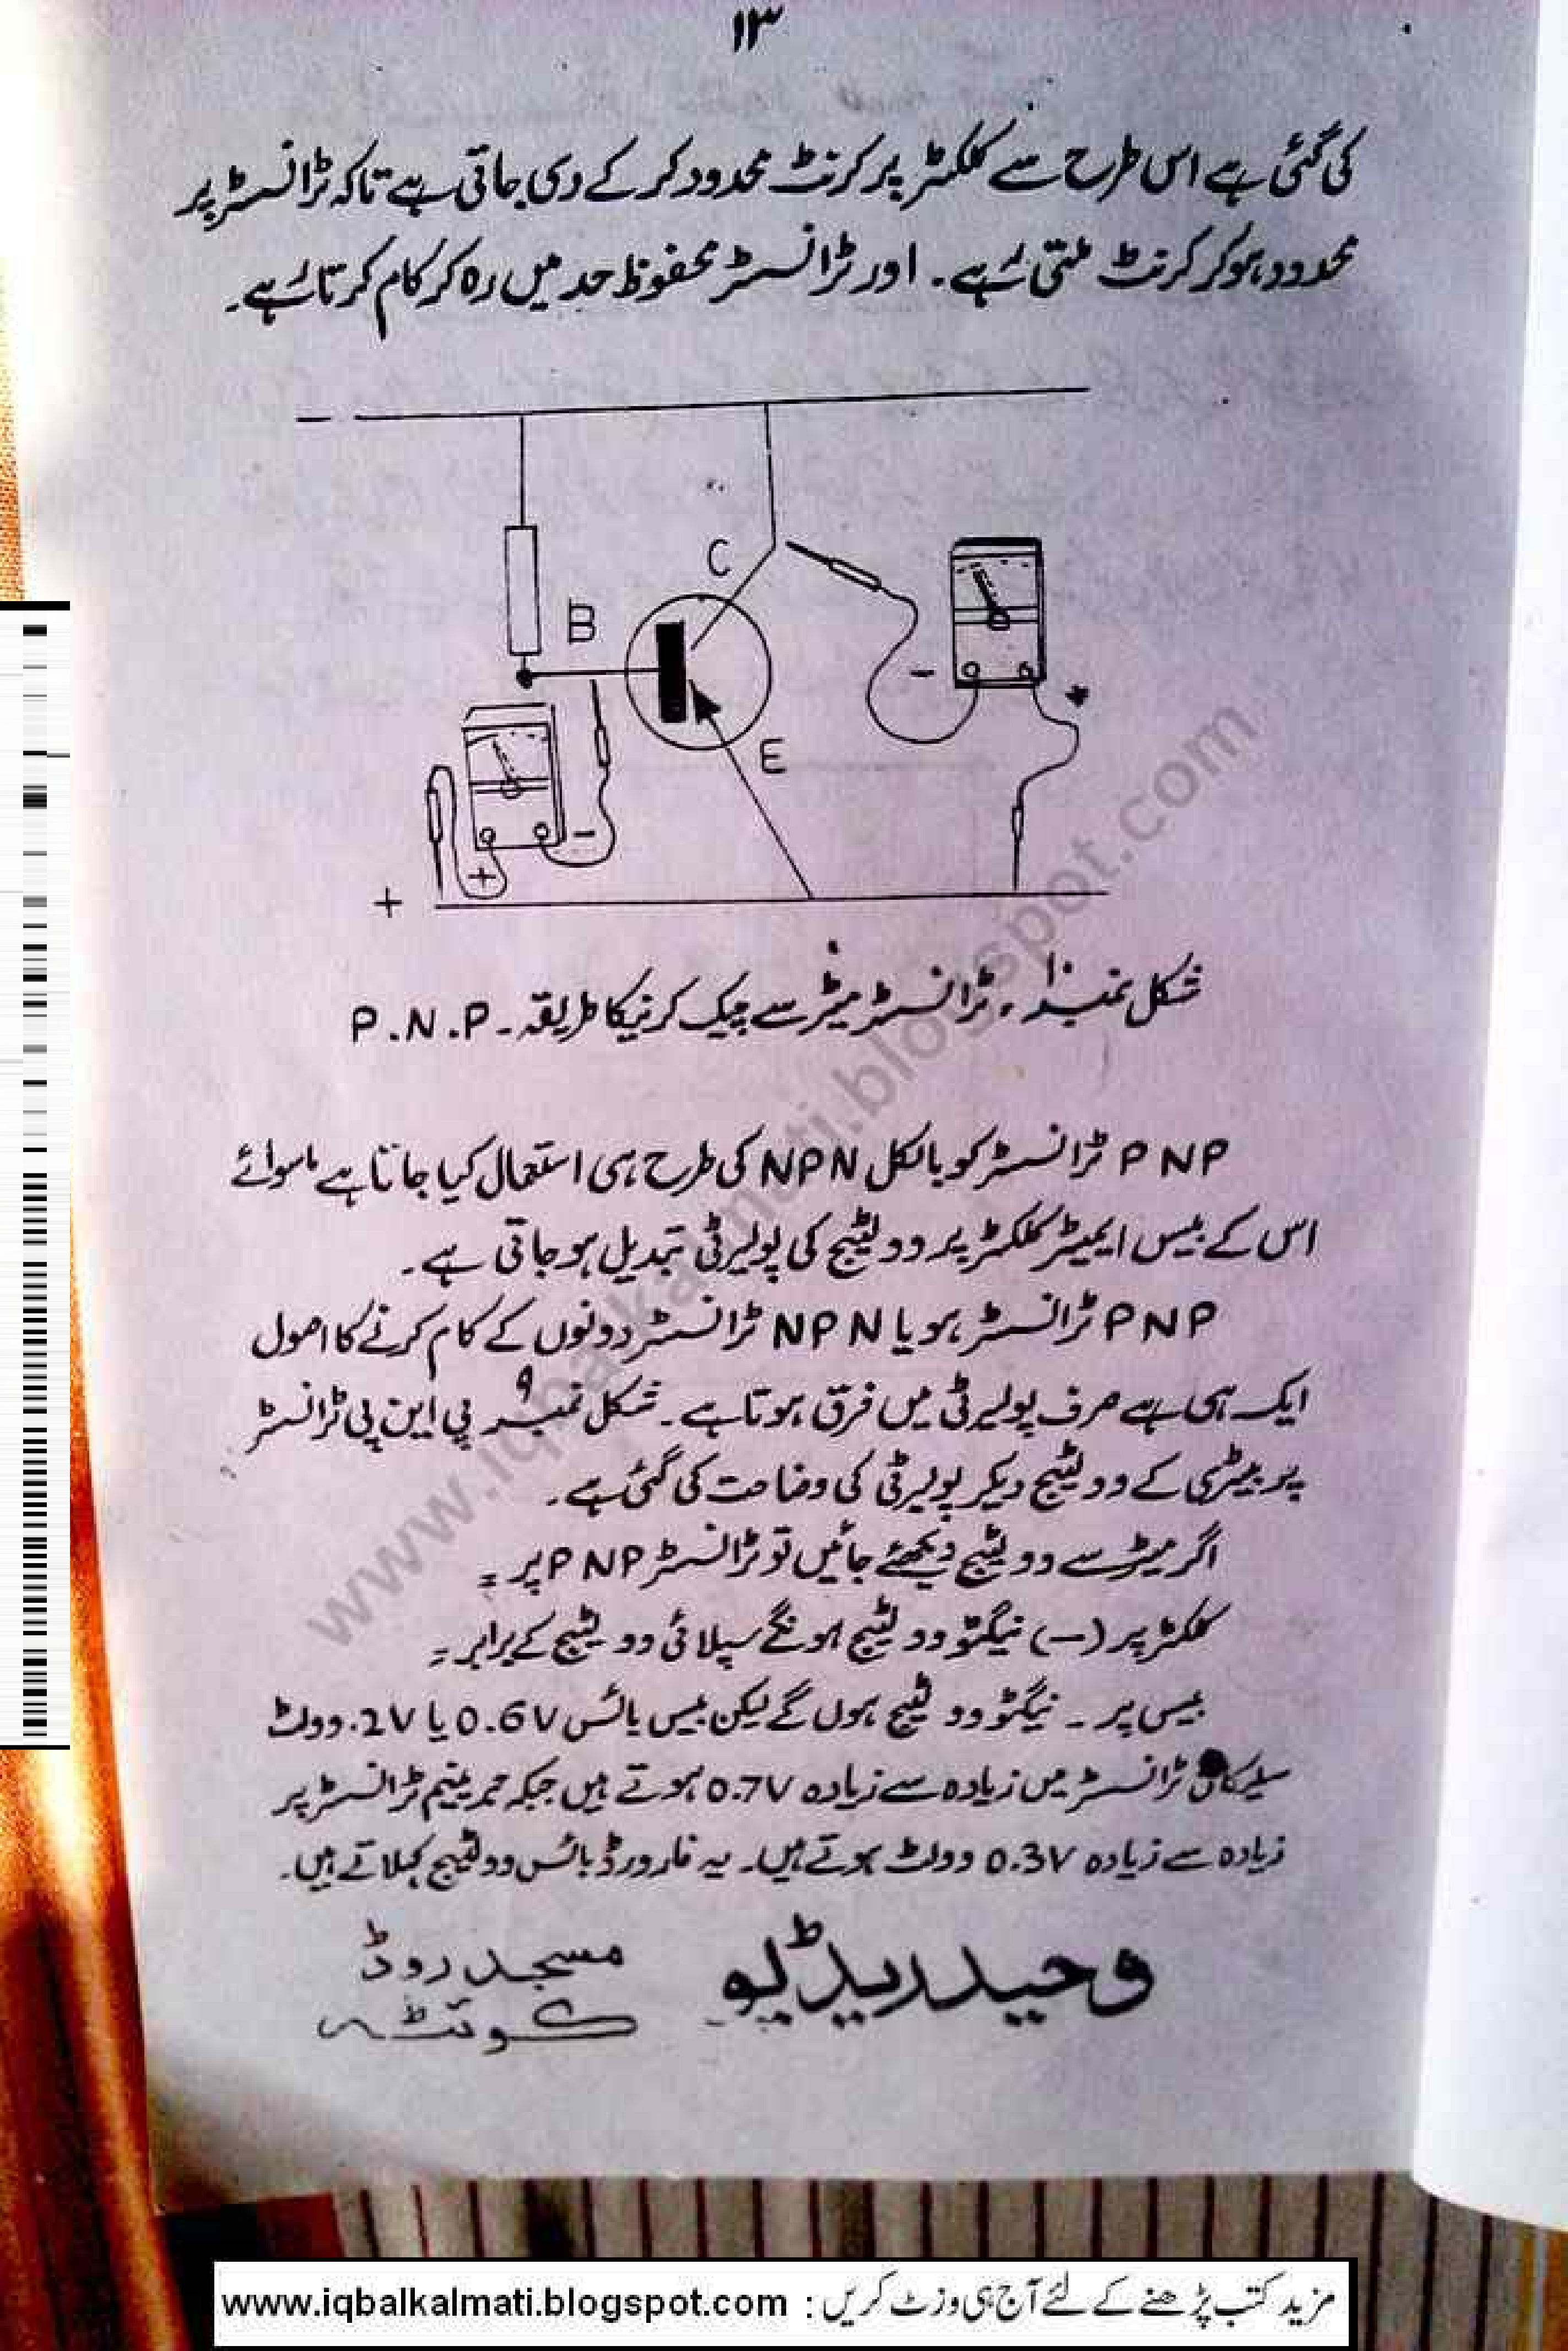 ۱۳
کی گئی ہے اس طرح سے کلکٹر پر کرنٹ محدود کر کے دی جاتی ہے تاکہ ٹرانسسٹر پر
محدود ہو کر کرنٹ ملتی رہے۔ اور ٹرانسسٹر محفوظ حد میں رہ کر کام کرتا رہے۔
−
C
B
−
+
E
−
+
+
شکل نمبر ۱۰۔ ٹرانسسٹر میٹر سے چیک کرنیکا طریقہ۔ P.N.P
PNP ٹرانسسٹر کو بالکل NPN کی طرح ہی استعمال کیا جاتا ہے ماسوائے
اس کے بیس ایمیٹر کلکٹر پر وولٹیج کی پولیرٹی تبدیل ہو جاتی ہے۔
PNP ٹرانسسٹر ہو یا NPN ٹرانسسٹر دونوں کے کام کرنے کا اصول
ایک ہی ہے صرف پولیرٹی میں فرق ہوتا ہے۔ شکل نمبر ۹ پی این پی ٹرانسسٹر
پر بیٹری کے وولٹیج دیکر پولیرٹی کی وضاحت کی گئی ہے۔
اگر میٹر سے وولٹیج دیکھے جائیں تو ٹرانسسٹر PNP پر =
کلکٹر پر (−) نیگٹو وولٹیج ہونگے سپلائی وولٹیج کے برابر =
بیس پر ۔ نیگٹو وولٹیج ہوں گے لیکن بیس بائس 0.6V یا .2V وولٹ
سلیکان ٹرانسسٹر میں زیادہ سے زیادہ 0.7V ہوتے ہیں جبکہ جرمینیم ٹرانسسٹر پر
زیادہ سے زیادہ 0.3V وولٹ ہوتے ہیں۔ یہ فارورڈ بائس وولٹیج کہلاتے ہیں۔
وحید ریڈیو مسجد روڈ
کوئٹہ
www.iqbalkalmati.blogspot.com
مزید کتب پڑھنے کے لئے آج ہی وزٹ کریں : www.iqbalkalmati.blogspot.com